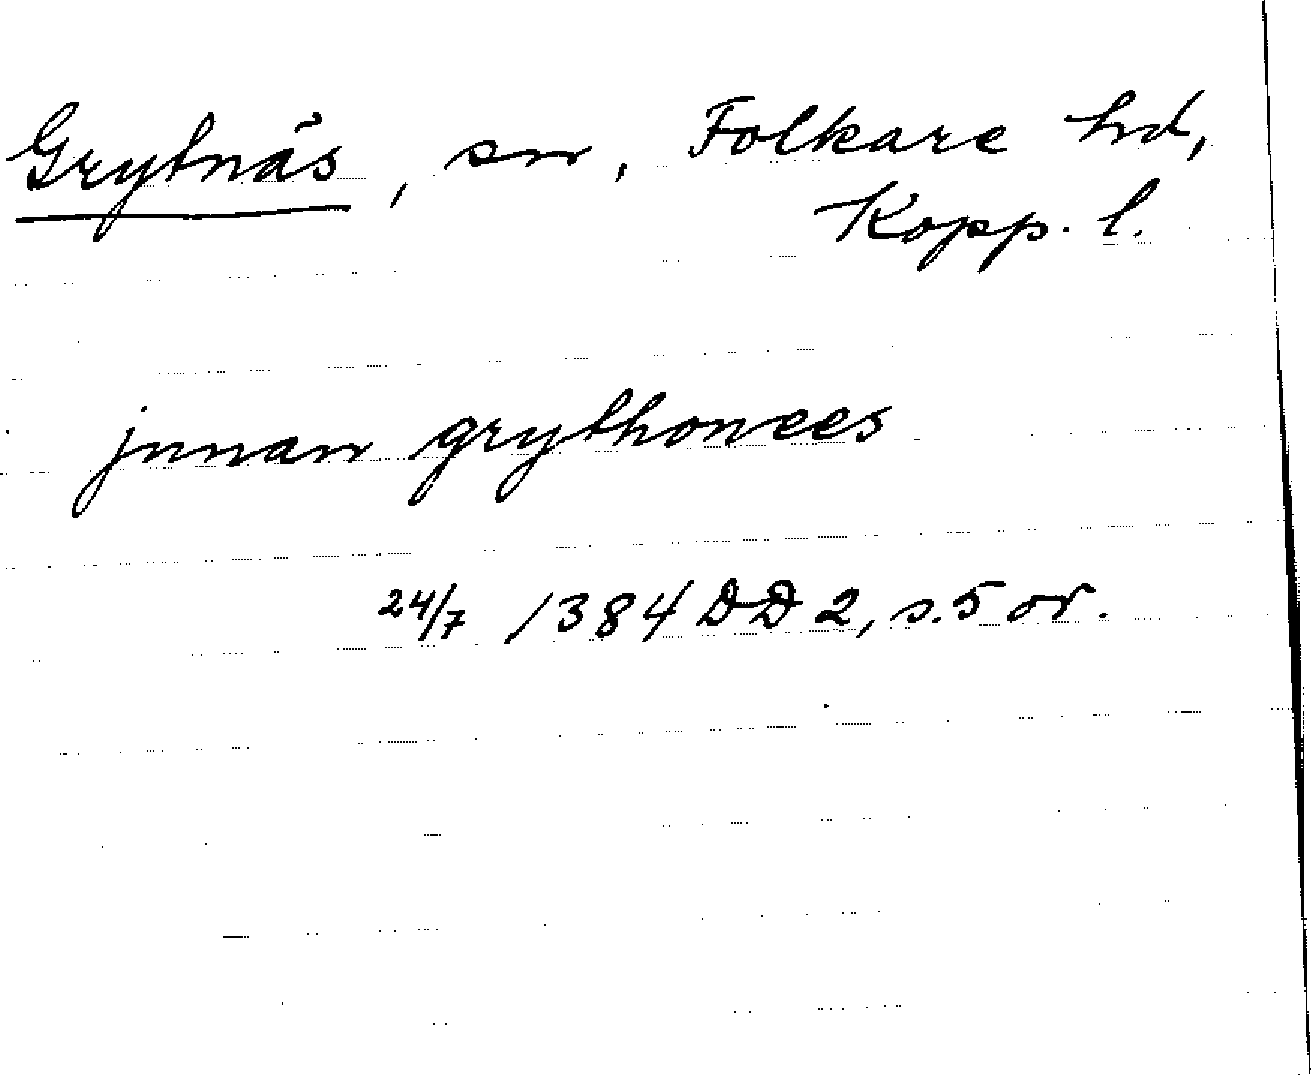 Grytnäs, sn, Folkare hd,
Kopp. l.
jnnan grythonees
24/7 1384 DD 2, s. 5 or.